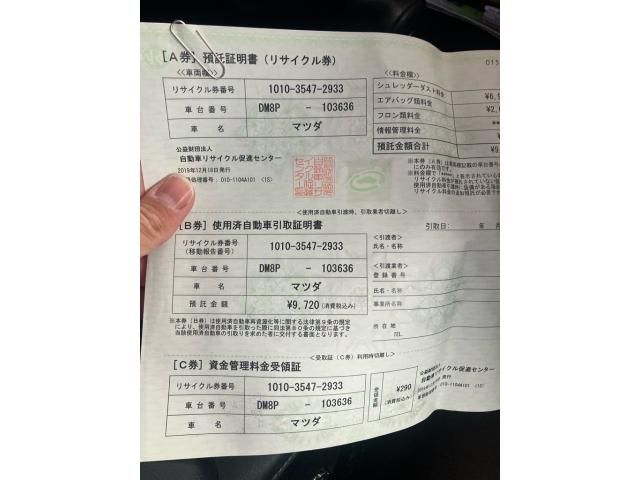 [A券] 預託証明書 (リサイクル券)
≪車両欄≫
リサイクル券番号 1010-3547-2933
車台番号 DM8P - 103636
車名 マツダ
≪料金欄≫
シュレッダーダスト料金
エアバッグ類料金
フロン類料金
情報管理料金
預託金額合計
公益財団法人
自動車リサイクル促進センター
2019年12月18日発行
処理番号：010-1104A101 (1S)
＜使用済自動車引渡時、引取業者切離し＞
[B券] 使用済自動車引取証明書
引取日： 年
リサイクル券番号 1010-3547-2933
(移動報告番号)
車台番号 DM8P - 103636
車名 マツダ
預託金額 ¥9,720 (消費税込み)
＜引渡者＞
氏名・名称
＜引取業者＞
登録番号
氏名・名称
事業所名称
所在地
TEL
※本券［B券］は使用済自動車再資源化等に関する法律第９条の規定
により、使用済自動車を引取った際に同法第８０条の規定に基づき
当該使用済自動車の引取りを求めた者に交付する書面となります。
＜受取証（C券）利用時切離し＞
[C券] 資金管理料金受領証
リサイクル券番号 1010-3547-2933
車台番号 DM8P - 103636
車名 マツダ
¥290
(消費税込み)
自動車リサイクル促進センター